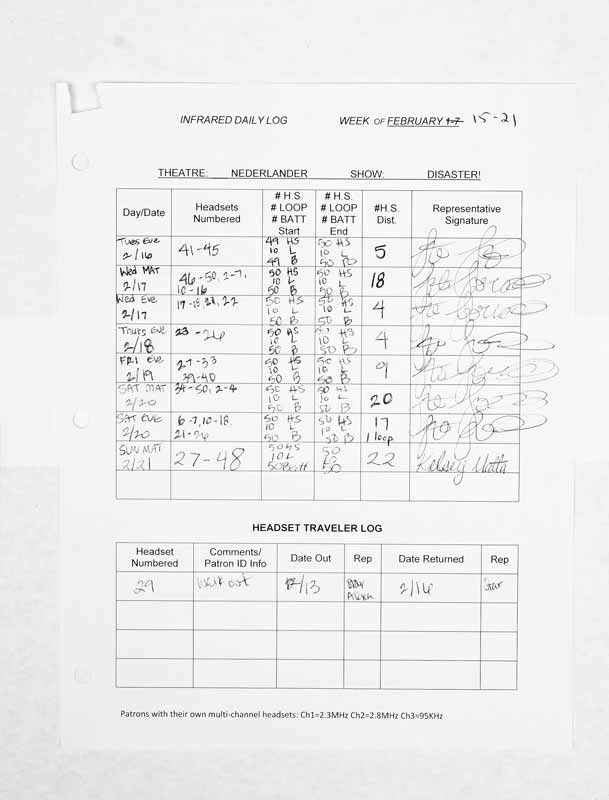 INFRARED DAILY LOG WEEK OF FEBRUARY 15-21
THEATRE: NEDERLANDER SHOW: DISASTER!
Day/Date
Headsets
Numbered
# H.S.
# LOOP
# BATT
Start
# H.S.
# LOOP
# BATT
End
#H.S.
Dist.
Representative
Signature
Tues Eve
2/16
41-45
49 HS
10 L
49 B
50 HS
10 L
50 B
5
Wed MAT
2/17
46-50, 2-7,
10-16
50 HS
10 L
50 B
50 HS
10 L
50 B
18
Wed Eve
2/17
17-18, 21, 22
50 HS
10 L
50 B
50 HS
10 L
50 B
4
Thurs Eve
2/18
23-26
50 HS
10 L
50 B
50 HS
10 L
50 B
4
FRI Eve
2/19
27-33
39-40
50 HS
10 L
50 B
50 HS
10 L
50 B
9
SAT MAT
2/20
34-50, 2-4
50 HS
10 L
50 B
50 HS
10 L
50 B
20
SAT EVE
2/20
6-7, 10-18
21-26
50 HS
10 L
50 B
50 HS
10 L
50 B
17
1 loop
SUN MAT
2/21
27-48
50 HS
10 L
50 Batt
50
10
50
22
Kelsey Matta
HEADSET TRAVELER LOG
Headset
Numbered
Comments/
Patron ID Info
Date Out
Rep
Date Returned
Rep
29
Walk out
2/13
2/16
Patrons with their own multi-channel headsets: Ch1=2.3MHz Ch2=2.8MHz Ch3=95KHz